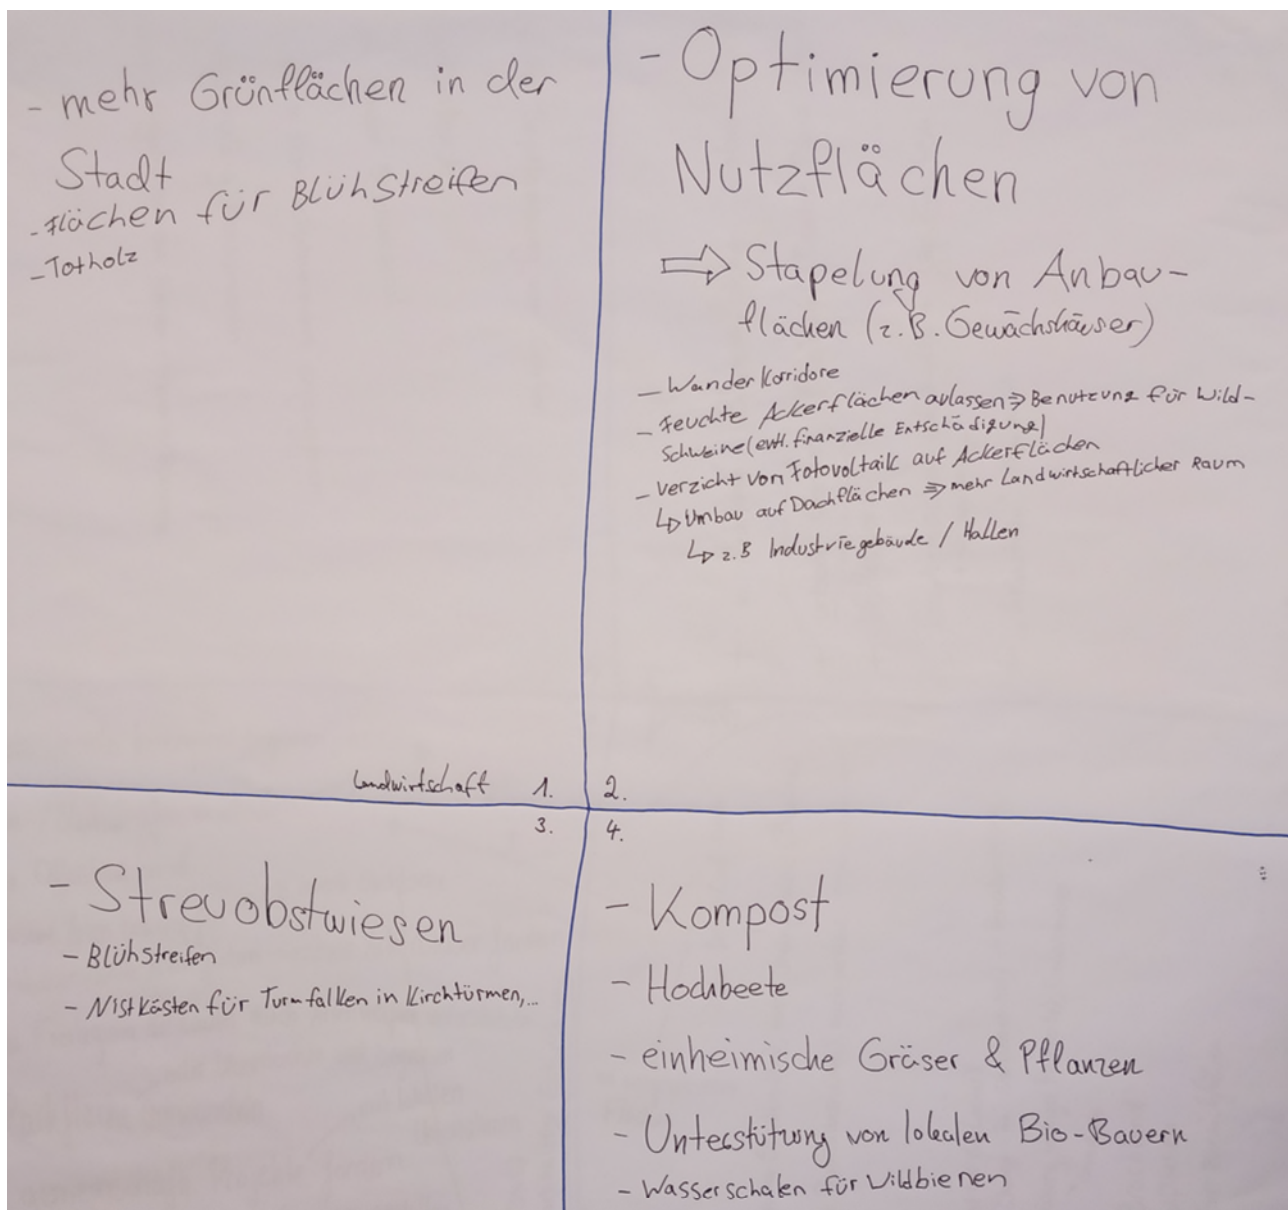 - mehr Grünflächen in der
Stadt
- Flächen für Blühstreifen
- Totholz
Landwirtschaft 1.
- Optimierung von
Nutzflächen
⇒ Stapelung von Anbau-
flächen (z.B. Gewächshäuser)
- Wanderkorridore
- Feuchte Ackerflächen aulassen ⇒ Benutzung für Wild-
Schweine (evtl. finanzielle Entschädigung)
- Verzicht von Fotovoltaik auf Ackerflächen
↳ Umbau auf Dachflächen ⇒ mehr Landwirtschaftlicher Raum
↳ z.B Industriegebäude / Hallen
2.
3.
- Streuobstwiesen
- Blühstreifen
- Nistkästen für Turmfalken in Kirchtürmen,...
4.
- Kompost
- Hochbeete
- einheimische Gräser & Pflanzen
- Unterstützung von lokalen Bio-Bauern
- Wasserschalen für Wildbienen